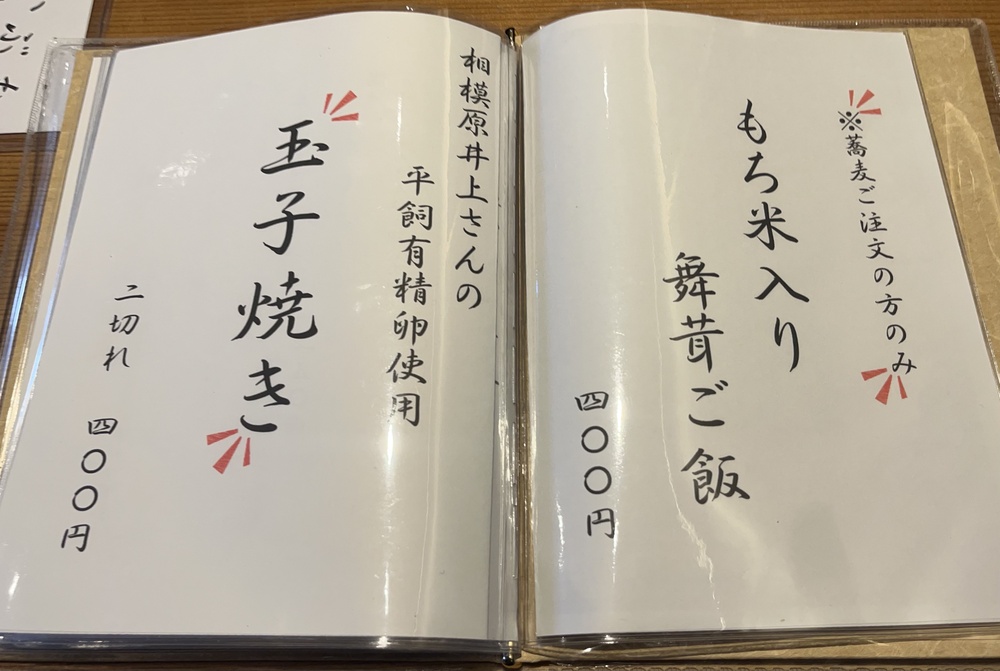 ※蕎麦ご注文の方のみ
もち米入り
舞茸ご飯
四〇〇円
相模原井上さんの
平飼有精卵使用
玉子焼き
二切れ
四〇〇円